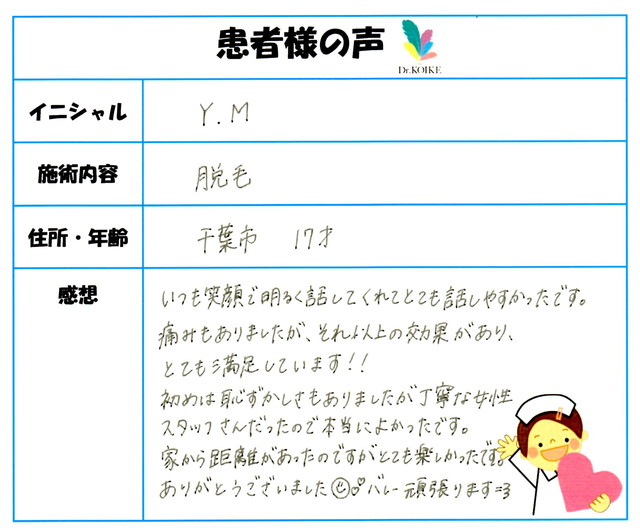 患者様の声
Dr.KOIKE
イニシャル
Y.M
施術内容
脱毛
住所・年齢
千葉市 17才
感想
いつも笑顔で明るく話してくれてとても話しやすかったです。
痛みもありましたが、それ以上の効果があり、
とても満足しています!!
初めは恥ずかしさもありましたが丁寧な女性
スタッフさんだったので本当によかったです。
家から距離があったのですがとても楽しかったです。
ありがとうございました バレー頑張ります=3